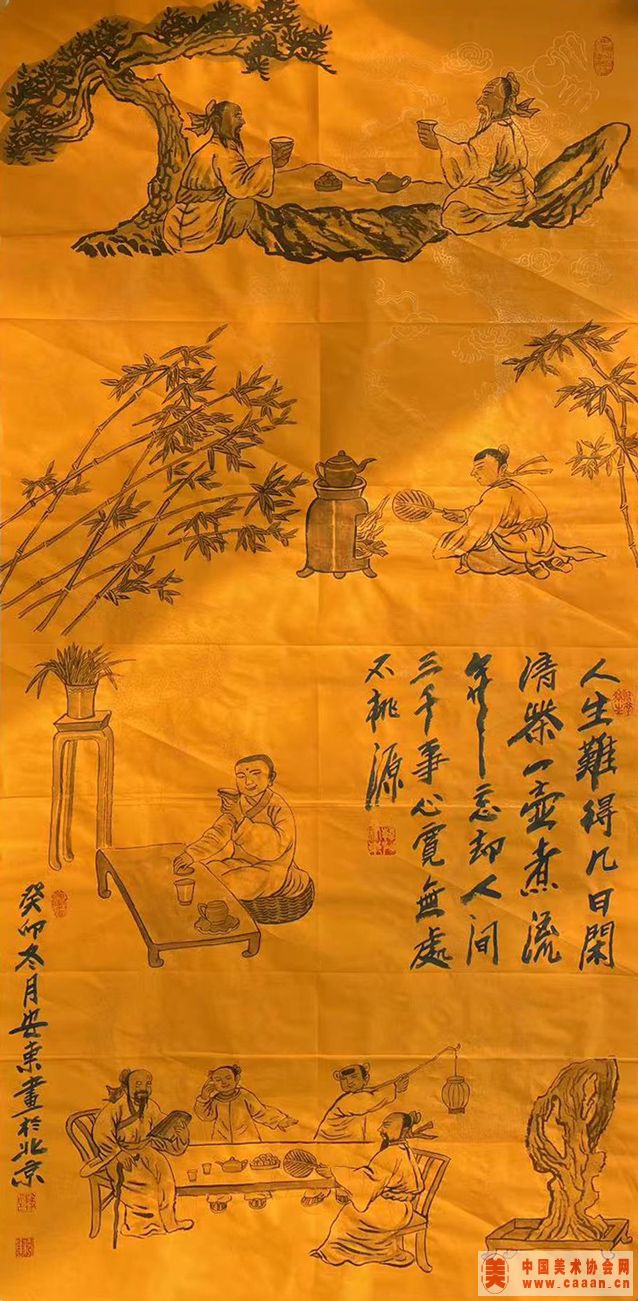 人生難得几日閑
清茶一壶煮流
年忘却人间
三千事心寬無處
不桃源
癸卯冬月安東畫於北京
美 中国美术协会网
www.caaan.cn